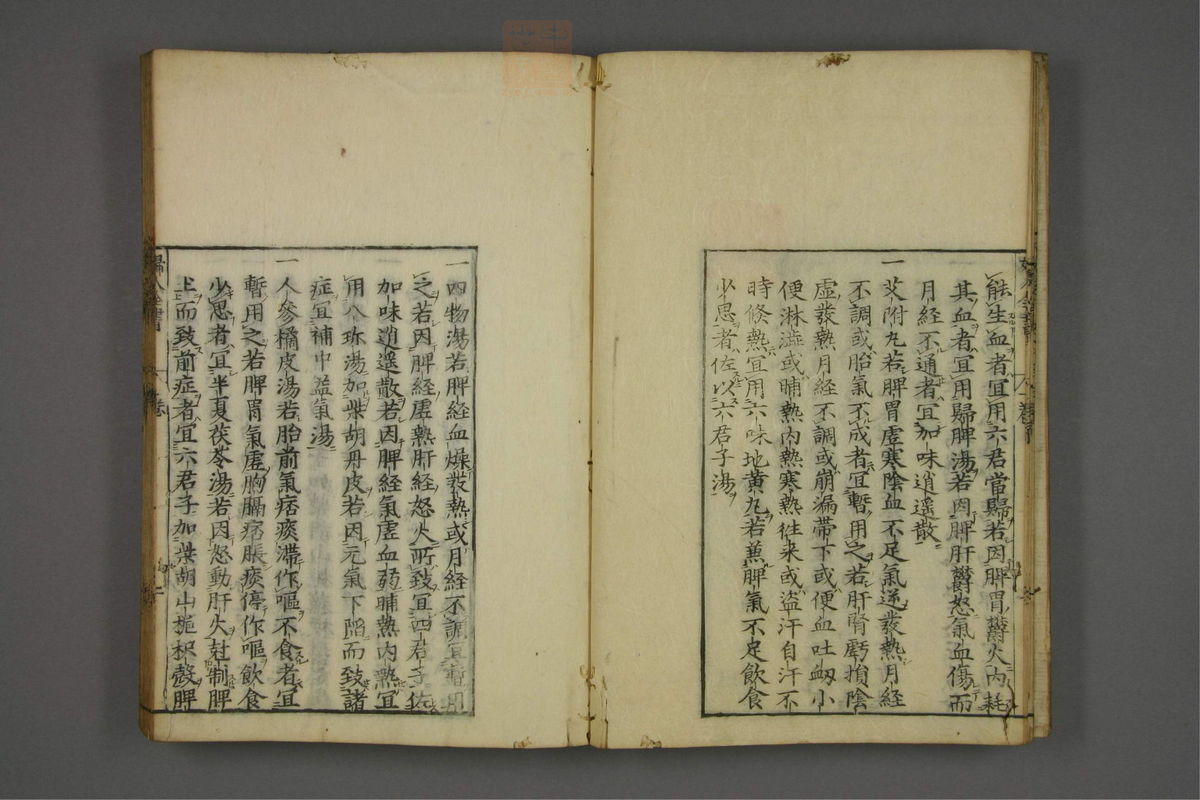 能生血者宜用六君當歸若因脾胃欝火內耗
其血者宜用歸脾湯若因脾肝欝怒氣血傷而
月經不通者宜加味逍遥散
一
艾附丸若脾胃虛寒陰血不足氣逆發熱月經
不調或胎氣不成者宜暫用之若肝腎虧損陰
虛發熱月經不調或崩漏帶下或便血吐衂小
便淋澁或晡熱內熱寒熱徃来或盜汗自汗不
時倏熱宜用六味地黄丸若兼脾氣不足飲食
少思者佐以六君子湯
一四物湯若脾経血燥發熱或月経不調宜暫用
之若因脾経虛熱肝経怒火所致宜四君子佐
加味逍遥散若因脾経氣虛血弱晡熱內熱宜
用八珍湯加柴胡丹皮若因元氣下陷而致諸
症宜補中益氣湯
一
人參橘皮湯若胎前氣痞痰滯作嘔不食者宜
暫用之若脾胃氣虛胸膈痞脹痰停作嘔飲食
少思者宜半夏茯苓湯若因怒動肝火尅制脾
土而致前症者宜六君子加柴胡山梔枳殼脾
婦人全書